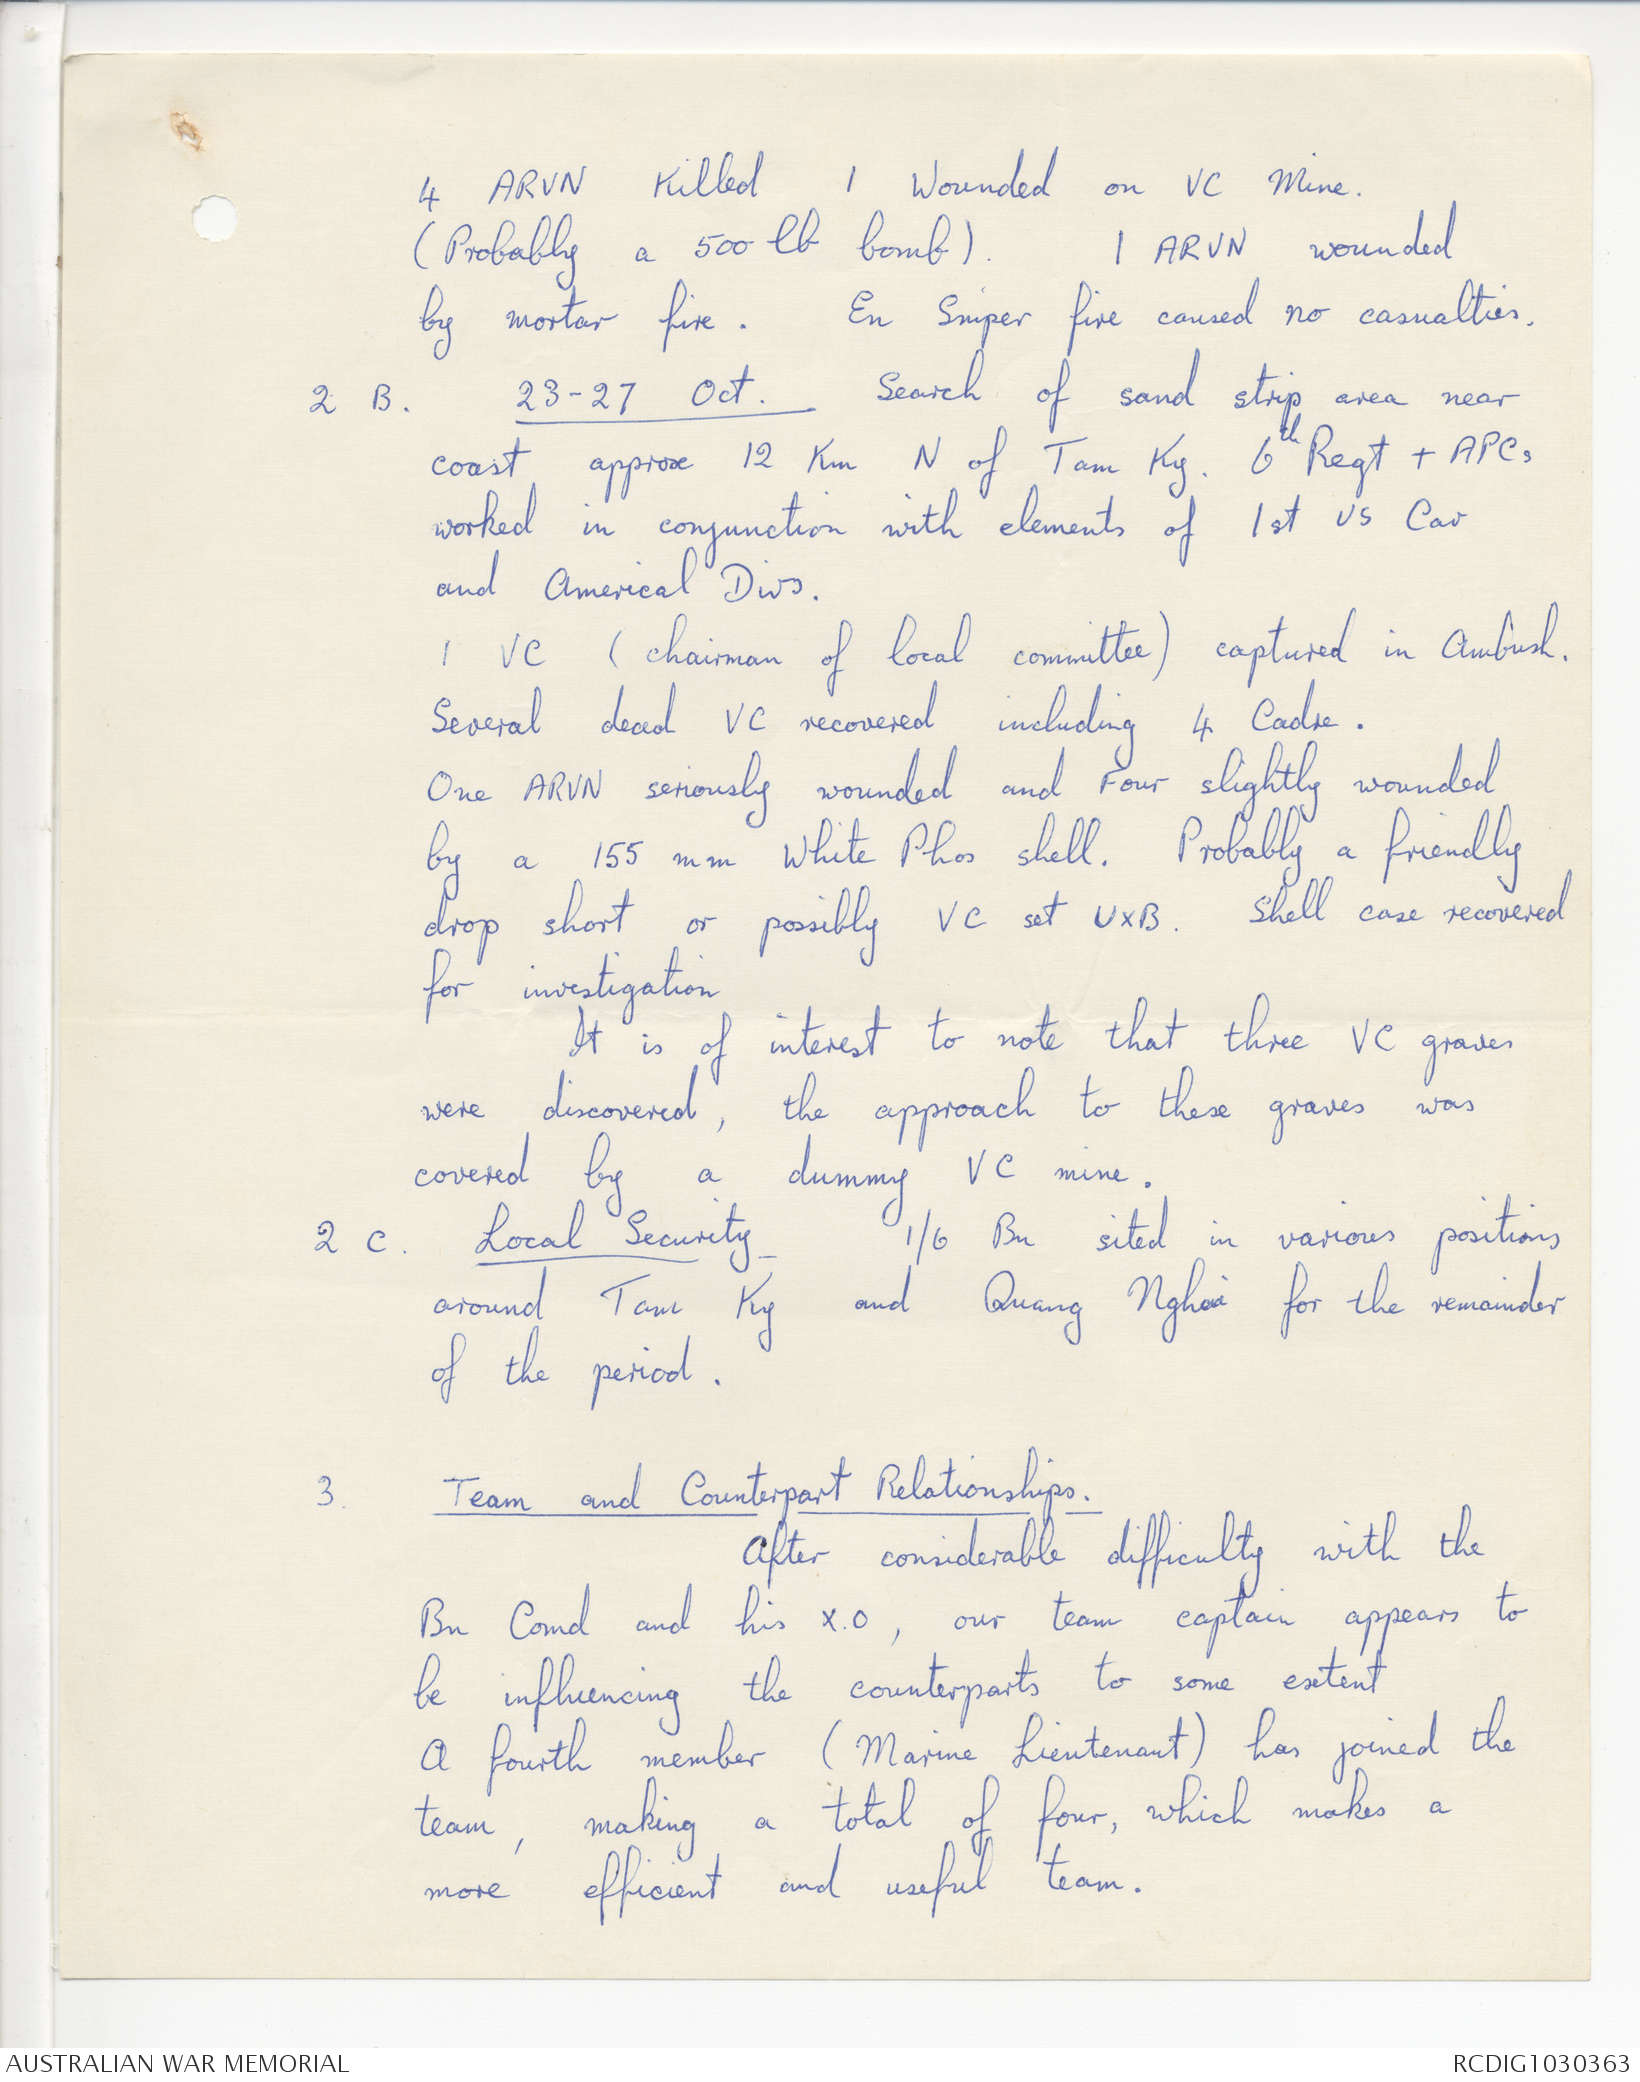 4 ARVN Killed 1 Wounded on VC Mine.
(Probably a 500 lb bomb). 1 ARVN wounded
by mortar fire. En Sniper fire caused no casualties.
2 B. 23-27 Oct. Search of sand strip area near
coast approx 12 Km N of Tam Ky. 6th Regt + APCs
worked in conjunction with elements of 1st US Cav
and Americal Divs.
1 VC (chairman of local committee) captured in Ambush.
Several dead VC recovered including 4 Cadre.
One ARVN seriously wounded and Four slightly wounded
by a 155 mm White Phos shell. Probably a friendly
drop short or possibly VC set UXB. Shell case recovered
for investigation
It is of interest to note that three VC graves
were discovered, the approach to these graves was
covered by a dummy VC mine.
2 C. Local Security 1/6 Bn sited in various positions
around Tam Ky and Quang Nghai for the remainder
of the period.
3. Team and Counterpart Relationships.
After considerable difficulty with the
Bn Comd and his X.O, our team captain appears to
be influencing the counterparts to some extent
A fourth member (Marine Lieutenant) has joined the
team, making a total of four, which makes a
more efficient and useful team.
AUSTRALIAN WAR MEMORIAL
RCDIG1030363